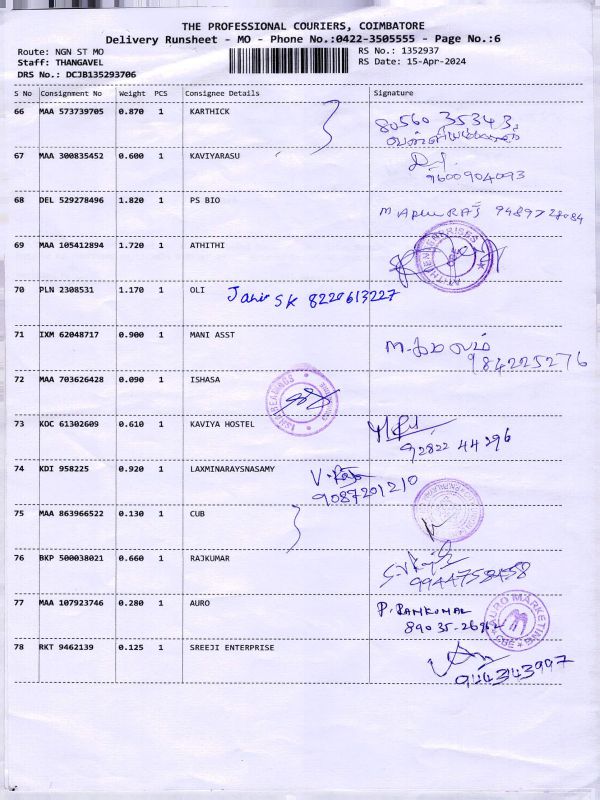 THE PROFESSIONAL COURIERS, COIMBATORE
Delivery Runsheet - MO - Phone No.:0422-3505555 - Page No.:6
Route: NGN ST MO
RS No.: 1352937
Staff: THANGAVEL
RS Date: 15-Apr-2024
DRS No.: DCJB135293706
S No Consignment No Weight PCS Consignee Details Signature
66 MAA 573739705 0.870 1 KARTHICK
80560 35343
67 MAA 300835452 0.600 1 KAVIYARASU
9600904093
68 DEL 529278496 1.820 1 PS BIO
9489728084
69 MAA 105412894 1.720 1 ATHITHI
70 PLN 2308531 1.170 1 OLI
SK 8220613227
71 IXM 62048717 0.900 1 MANI ASST
984225276
72 MAA 703626428 0.090 1 ISHASA
73 KOC 61302609 0.610 1 KAVIYA HOSTEL
92822 44296
74 KDI 958225 0.920 1 LAXMINARAYSNASAMY
9087201210
75 MAA 863966522 0.130 1 CUB
76 BKP 500038021 0.660 1 RAJKUMAR
77 MAA 107923746 0.280 1 AURO
P. RAMKUMAR
AURO MARKETING
CBE
78 RKT 9462139 0.125 1 SREEJI ENTERPRISE
9443143997